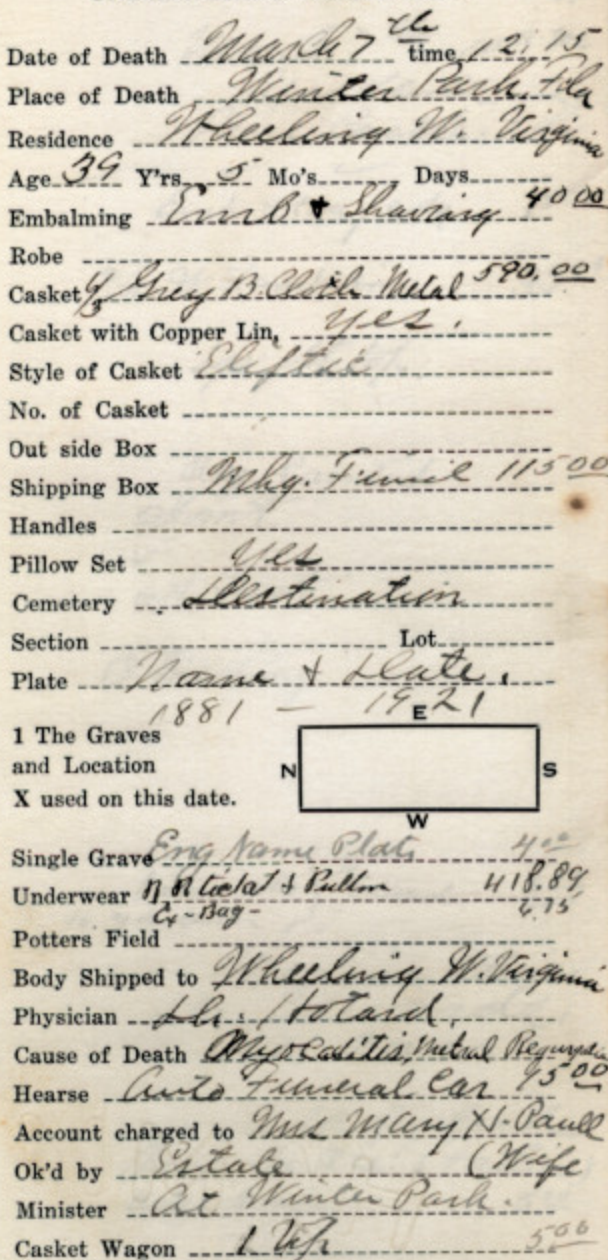 Date of Death March 7th time 12.15
Place of Death Winter Park, Fla
Residence Wheeling W. Virginia
Age 39 Y'rs 5 Mo's Days
Embalming Emb & Shaving 40 00
Robe
Casket Grey B. Cloth Metal 590.00
Casket with Copper Lin, yes.
Style of Casket
No. of Casket
Out side Box
Shipping Box Mhg. 115 00
Handles
Pillow Set Yes
Cemetery Destination
Section Lot
Plate Name & Date.
1881 - 1921
1 The Graves
and Location
X used on this date.
E
N
S
W
Single Grave Eng Name Plate 4 00
Underwear & Pullm 418.89
Bag - 75
Potters Field
Body Shipped to Wheeling W. Virginia
Physician Dr. Hotard.
Cause of Death Metral
Hearse Auto Funeral Car 00
Account charged to Mrs Mary H. Paull
Ok'd by Estate (Wife
Minister At Winter Park.
Casket Wagon 1 5 00